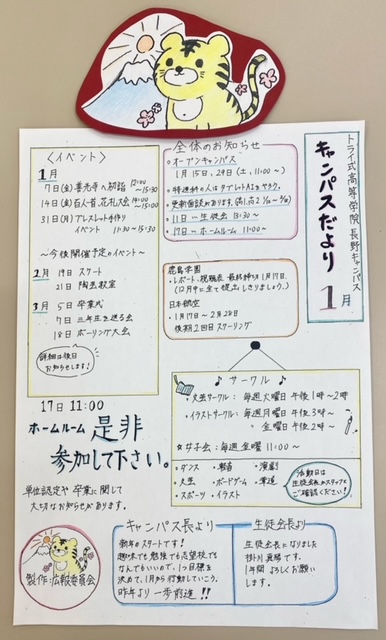 トライ式高等学院 長野キャンパス
キャンパスだより
1月
全体のお知らせ
・オープンキャンパス
1月15日、29日(土、11:00〜)
・特進科の人はタブレットAIをやろう。
・更新面談があります。
・11日〜生徒会 13:30〜
・17日〜ホームルーム 11:00〜
〈イベント〉
1月
7日(金)善光寺へ初詣 12:00〜15:30
14日(金)百人一首、花札大会 14:00〜15:30
31日(月)ブレスレット手作り
イベント 11:30〜15:30
〜今後開催予定のイベント〜
2月 19日 スケート
21日 陶芸教室
3月 5日 卒業式
7日 三年生を送る会
18日 ボーリング大会
詳細は後日
お知らせします!
鹿島学園
・レポート、視聴表 最終締切 1月17日。
(12月中に全て提出しきりましょう。)
日本航空
・1月17日〜2月28日
後期2回目スクーリング
♪サークル♪
・文芸サークル:毎週火曜日 午後1時〜2時
・イラストサークル:毎週月曜日 午後3時〜
金曜日 午後2時〜
☆女子会:毎週金曜 11:00〜
・ダンス ・軽音 ・演劇
・文芸 ・ボードゲーム ・華道
・スポーツ ・イラスト
活動日は
生徒会長かスタッフに
ご確認ください!
17日 11:00
ホームルーム 是非
参加して下さい。
単位認定や卒業に関して
大切なお知らせがあります。
製作:広報委員会
キャンパス長より
新年のスタートです!
趣味でも勉強でも志望校でも
なんでもいいので、1つ目標を
決めて、1月から行動していこう。
昨年より一歩前進!!
生徒会長より
生徒会長になりました
掛川真晴です。
1年間よろしくお願い
します。